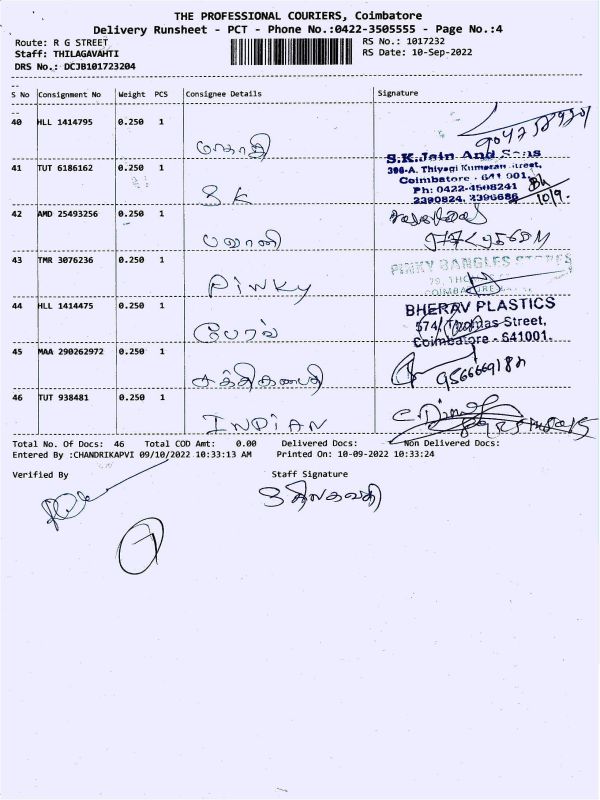 THE PROFESSIONAL COURIERS, Coimbatore
Delivery Runsheet - PCT - Phone No.:0422-3505555 - Page No.:4
Route: R G STREET
Staff: THILAGAVAHTI
DRS No.: DCJB101723204
RS No.: 1017232
RS Date: 10-Sep-2022
S No Consignment No Weight PCS Consignee Details Signature
40 HLL 1414795 0.250 1
41 TUT 6186162 0.250 1 S K
S.K.Jain And Sons
396-A, Thiyagi Kumaran Street,
Coimbatore - 641 001.
Ph: 0422-4508241
2390824, 2396686
10/9.
42 AMD 25493256 0.250 1 பழானி
43 TMR 3076236 0.250 1 Pinky
PINKY BANGLES STORES
44 HLL 1414475 0.250 1 பேரவ்
BHERAV PLASTICS
574, Thomas Street,
Coimbatore - 641001.
45 MAA 290262972 0.250 1 சக்திகணபதி
46 TUT 938481 0.250 1 INDIAN
Total No. Of Docs: 46 Total COD Amt: 0.00 Delivered Docs: Non Delivered Docs:
Entered By :CHANDRIKAPVI 09/10/2022 10:33:13 AM Printed On: 10-09-2022 10:33:24
Verified By Staff Signature